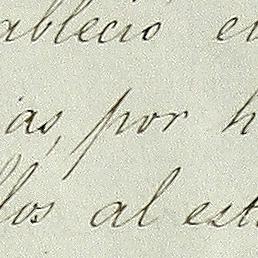 ableció e
as, por h
los al est